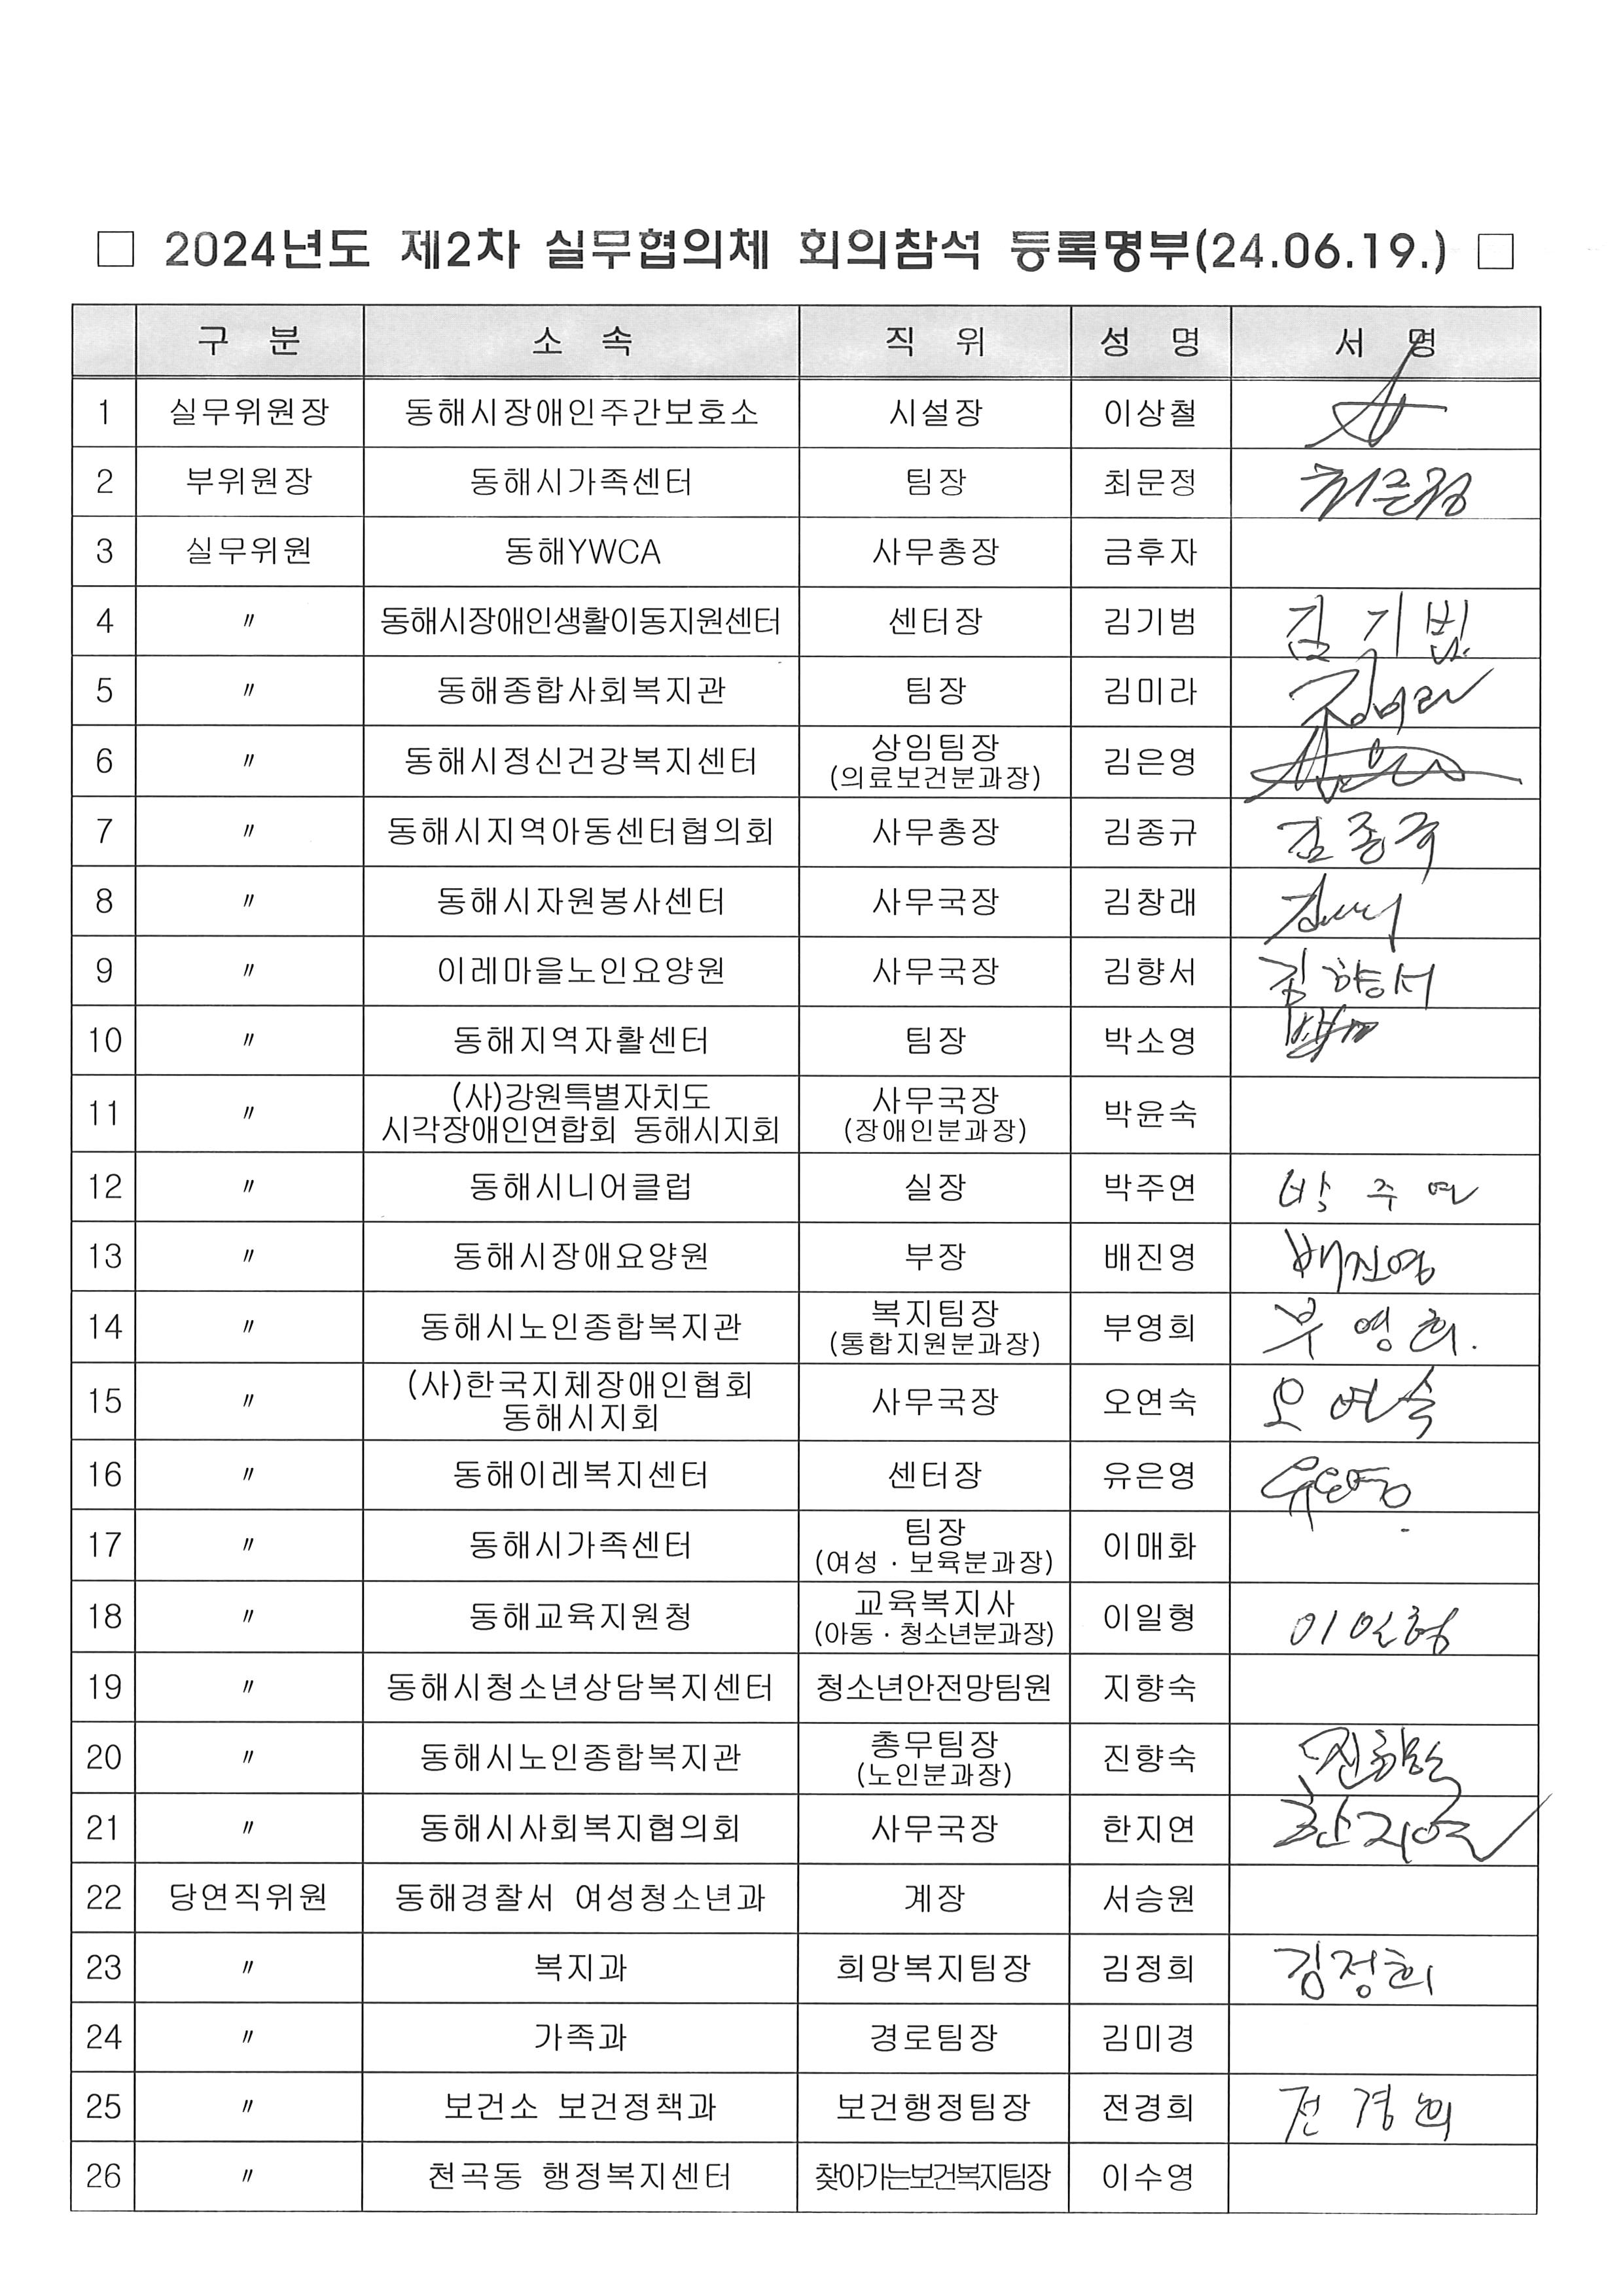 □ 2024년도 제2차 실무협의체 회의참석 등록명부(24.06.19.) □
구 분 소 속 직 위 성 명 서 명
1 실무위원장 동해시장애인주간보호소 시설장 이상철
2 부위원장 동해시가족센터 팀장 최문정 최문정
3 실무위원 동해YWCA 사무총장 금후자
4 〃 동해시장애인생활이동지원센터 센터장 김기범 김기범
5 〃 동해종합사회복지관 팀장 김미라 김미라
6 〃 동해시정신건강복지센터 상임팀장 김은영
(의료보건분과장)
7 〃 동해시지역아동센터협의회 사무총장 김종규 김종규
8 〃 동해시자원봉사센터 사무국장 김창래
9 〃 이레마을노인요양원 사무국장 김향서 김향서
10 〃 동해지역자활센터 팀장 박소영
11 〃 (사)강원특별자치도 사무국장 박윤숙
시각장애인연합회 동해시지회 (장애인분과장)
12 〃 동해시니어클럽 실장 박주연 박주연
13 〃 동해시장애요양원 부장 배진영 배진영
14 〃 동해시노인종합복지관 복지팀장 부영희 부영희.
(통합지원분과장)
15 〃 (사)한국지체장애인협회 사무국장 오연숙 오연숙
동해시지회
16 〃 동해이레복지센터 센터장 유은영 유은영
17 〃 동해시가족센터 팀장 이매화
(여성·보육분과장)
18 〃 동해교육지원청 교육복지사 이일형 이일형
(아동·청소년분과장)
19 〃 동해시청소년상담복지센터 청소년안전망팀원 지향숙
20 〃 동해시노인종합복지관 총무팀장 진향숙 진향숙
(노인분과장)
21 〃 동해시사회복지협의회 사무국장 한지연 한지연
22 당연직위원 동해경찰서 여성청소년과 계장 서승원
23 〃 복지과 희망복지팀장 김정희 김정희
24 〃 가족과 경로팀장 김미경
25 〃 보건소 보건정책과 보건행정팀장 전경희 전경희
26 〃 천곡동 행정복지센터 찾아가는보건복지팀장 이수영